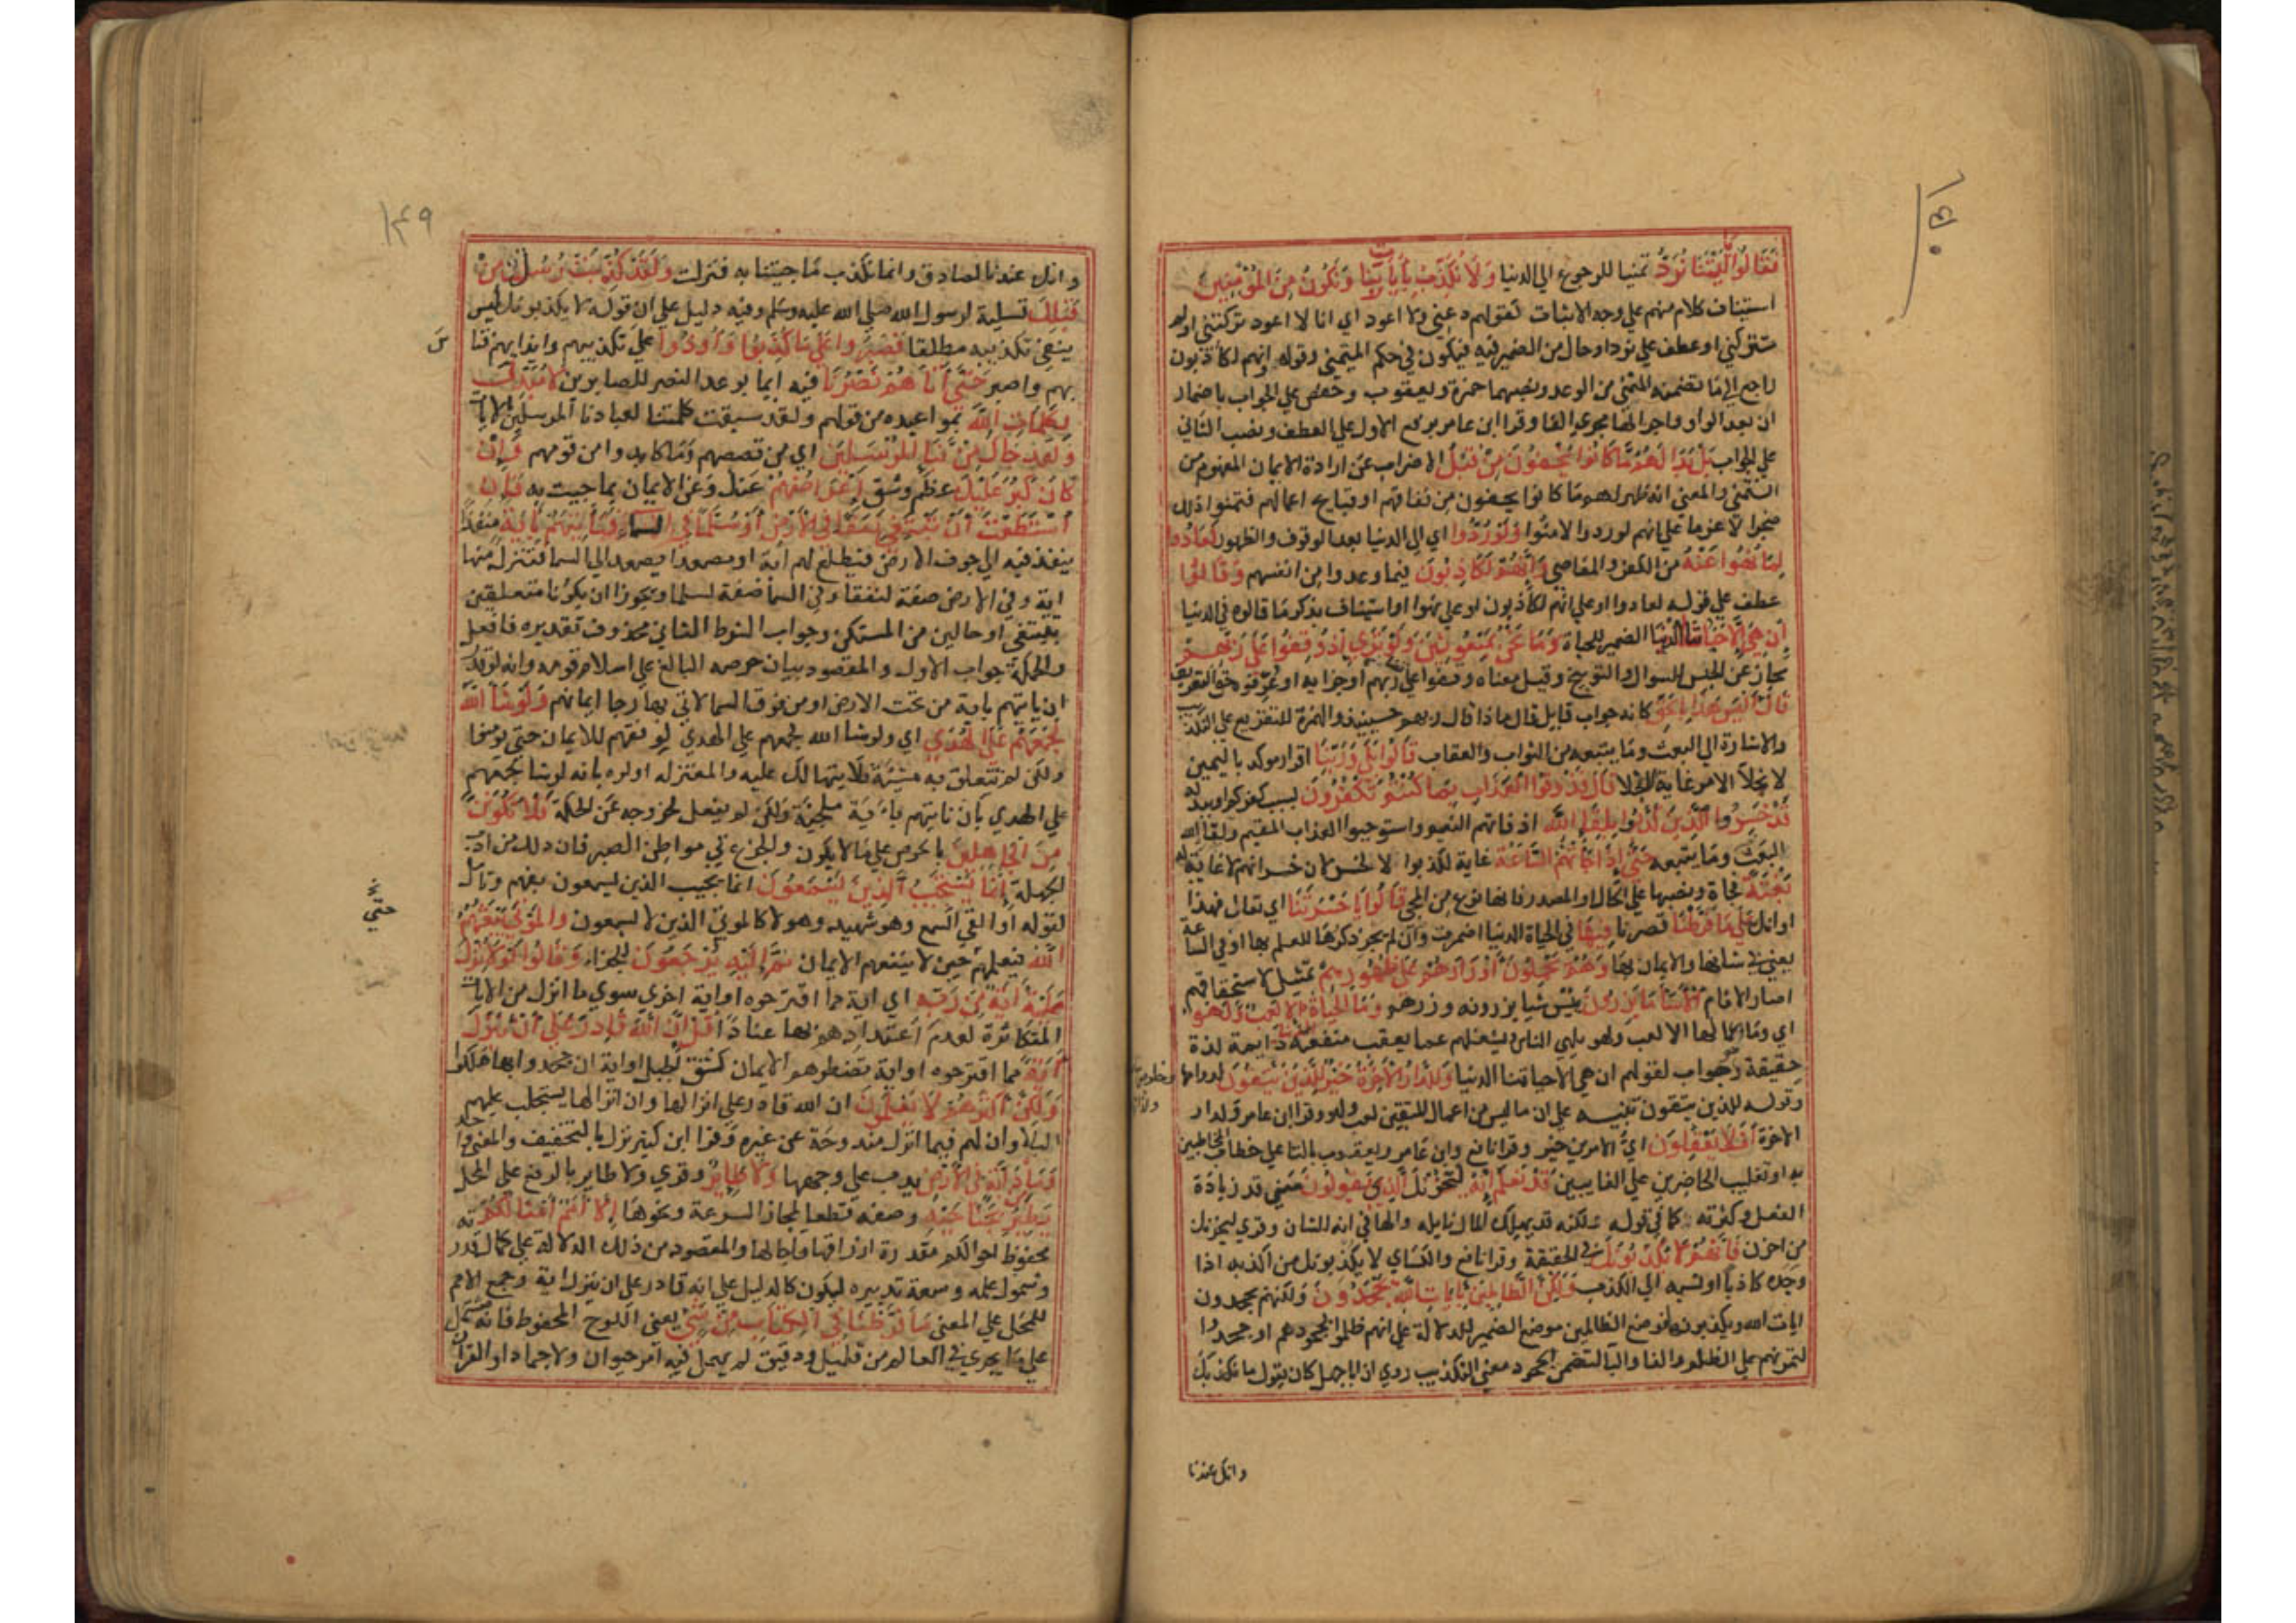 فقالوا يا ليتنا نرد تمنيا للرجوع الي الدنيا ولا نكذب بأيات ربنا ونكون من المؤمنين
استيناف كلام منهم علي وجه الاثبات كقولهم دعني ولا اعود اي انا لا اعود تركتني او لم
تتركني او عطف علي نرد او حال من الضمير فيه فيكون في حكم المتمني وقوله وانهم لكاذبون
راجع الي ما تضمنه التمني من الوعد ونصبهما حمزة ويعقوب وحفص علي الجواب باضمار
ان بعد الواو واجرا لها مجري الفا وقرا ابن عامر برفع الاول علي العطف ونصب الثاني
علي الجواب بل بدا لهم ما كانوا يخفون من قبل الاضراب عن ارادة الايمان المفهوم من
التمني والمعني انه ظهر لهم ما كانوا يخفون من نفاقهم او قبايح اعمالهم فتمنوا ذلك
ضجرا لا عزما علي انهم لو ردوا لامنوا ولو ردوا اي الي الدنيا بعد الوقوف والظهور لعادوا
لما نهوا عنه من الكفر والمعاصي وانهم لكاذبون فيما وعدوا من انفسهم وقالوا
عطف علي قوله لعادوا او علي انهم لكاذبون او علي نهوا او استيناف بذكر ما قالوه في الدنيا
ان هي الا حياتنا الدنيا الضمير للحياة وما نحن بمبعوثين ولو تري اذ وقفوا علي ربهم
مجاز عن الحبس للسوال والتوبيخ وقيل معناه وقفوا علي ربهم او جزايه او عرفوه حق التعريف
قال اليس هذا بالحق كانه جواب قايل قال ماذا قال ربهم حينيذ والهمزة للتقريع علي التكذيب
والاشارة الي البعث وما يتبعه من الثواب والعقاب قالوا بلي وربنا اقرار موكد باليمين
لانجلا الامر غاية الجلا قال فذوقوا العذاب بما كنتم تكفرون بسبب كفركم او ببدله
قد خسر الذين كذبوا بلقا الله اذ فاتهم النعيم واستوجبوا العذاب المقيم ولقا الله
البعث وما يتبعه حتي اذا جاتهم الساعة غاية لكذبوا لا لخسر لان خسرانهم لا غاية له
بغتة فجاة ونصبها علي الحال او المصدر فانها نوع من المجي قالوا يا حسرتنا اي تعال فهذا
اوانك علي ما فرطنا قصرنا فيها في الحياة الدنيا اضمرت وان لم يجر ذكرها للعلم بها او في الساعة
يعني في شانها والايمان بها وهم يحملون اوزارهم علي ظهورهم تمثيل لاستحقاقهم
اصار الاثام الا ساء ما يزرون بيس شيا يزرونه وزرهم وما الحياة الدنيا الا لعب ولهو
اي وما اعمالها الا لعب ولهو يلهي الناس ويشغلهم عما يعقب منفعة دايمة لذة
حقيقة وهو جواب لقولهم ان هي الا حياتنا الدنيا وللدار الاخرة خير للذين يتقون لدوامها وخلوص
وقوله للذين يتقون تنبيه علي ان ما ليس من اعمال المتقين لعب ولهو وقرا ابن عامر ولدار
الاخرة افلا يعقلون اي الامرين خير وقرا نافع وابن عامر ويعقوب بالتا علي خطاب المخاطبين
به او تغليب الحاضرين علي الغايبين قد نعلم انه ليحزنك الذي يقولون معني قد زيادة
الفعل وكثرته كما في قوله ولكنه قد يهلك المال نايله والها في انه للشان وقري ليحزنك
من احزن فانهم لا يكذبونك في الحقيقة وقرا نافع والكساي لا يكذبونك من اكذبه اذا
وجده كاذبا او نسبه الي الكذب ولكن الظالمين بايات الله يجحدون ولكنهم يجحدون
ايات الله ويكذبونها فوضع الظالمين موضع الضمير للدلالة علي انهم ظلموا بجحودهم او جحدوا
لتمرنهم علي الظلم والفا والبا لتضمن الجحود معني التكذيب روي ان ابا جهل كان يقول ما نكذبك
وانك عندنا
١٤٩
وانك عندنا لصادق وانما نكذب ما جيتنا به فنزلت ولقد كذبت رسل من
قبلك تسلية لرسول الله صلي الله عليه وسلم وفيه دليل علي ان قوله لا يكذبونك ليس
بنفي تكذيبه مطلقا فصبروا علي ما كذبوا واوذوا علي تكذيبهم وايذايهم فتاس
بهم واصبر حتي اتاهم نصرنا فيه ايما بوعد النصر للصابرين ولا مبدل
لكلمات الله لمواعيده من قولهم ولقد سبقت كلمتنا لعبادنا المرسلين الايات
ولقد جاك من نبا المرسلين اي من قصصهم وما كابدوا من قومهم وان
كان كبر عليك عظم وشق اعراضهم عنك وعن الايمان بما جيت به فان
استطعت ان تبتغي نفقا في الارض او سلما في السما فتاتيهم باية منفذا
ينفذ فيه الي جوف الارض فيطلع لهم اية او مصعدا يصعد الي السما فتنزل منها
اية وفي الارض صفة لنفقا وفي السما صفة لسلما ويجوز ان يكونا متعلقين
بتبتغي او حالين من المستكن وجواب الشرط الثاني محذوف تقديره فافعل
والجملة جواب الاول والمقصود بيان حرصه البالغ علي اسلام قومه وانه لو قدر
ان ياتيهم باية من تحت الارض او من فوق السما لاتي بها رجا ايمانهم ولو شا الله
لجمعهم علي الهدي اي ولو شا الله لجمعهم علي الهدي لوفقهم للايمان حتي يومنوا
ولكن لم تتعلق به مشيته فلا يتهالك عليه والمعتزلة اولوه بانه لو شا لجمعهم
علي الهدي بان تاتيهم باية ملجية ولكن لم يفعل لخروجه عن الحكمة فلا تكونن
من الجاهلين بالحرص علي ما لا يكون والجزع في مواطن الصبر فان ذلك من داب
الجهلة انما يستجيب الذين يسمعون انما يجيب الذين يسمعون بفهم وتامل
لقوله او القي السمع وهو شهيد وهولا كالموتي الذين لا يسمعون والموتي يبعثهم
الله فيعلمهم حين لا ينفعهم الايمان ثم اليه يرجعون للجزاء وقالوا لولا نزل
عليه اية من ربه اي اية مما اقترحوه او اية اخري سوي ما انزل من الايات
المتكاثرة لعدم اعتدادهم بها عنادا قل ان الله قادر علي ان ينزل
اية مما اقترحوه او اية تضطرهم الي الايمان كنتق الجبل او اية ان جحدوا بها هلكوا
ولكن اكثرهم لا يعلمون ان الله قادر علي انزالها وان انزالها يستجلب عليهم
البلا وان لهم فيما انزل مندوحة عن غيره وقرا ابن كثير ينزل بالتخفيف والمعني واحد
وما من دابة في الارض يدب علي وجهها ولا طاير وقري ولا طاير بالرفع علي المحل
يطير بجناحيه وصفه قطعا لمجاز السرعة ونحوها الا امم امثالكم
محفوظ احوالكم مقدرة ارزاقها واجالها والمقصود من ذلك الدلالة علي كمال قدرته
وشمول علمه وسعة تدبيره ليكون كالدليل علي انه قادر علي ان ينزل اية وجمع الامم
للحمل علي المعني ما فرطنا في الكتاب من شي يعني اللوح المحفوظ فانه مشتمل
علي ما يجري في العالم من قليل ودقيق لم يهمل فيه امر حيوان ولا جماد او القرآن
حتي